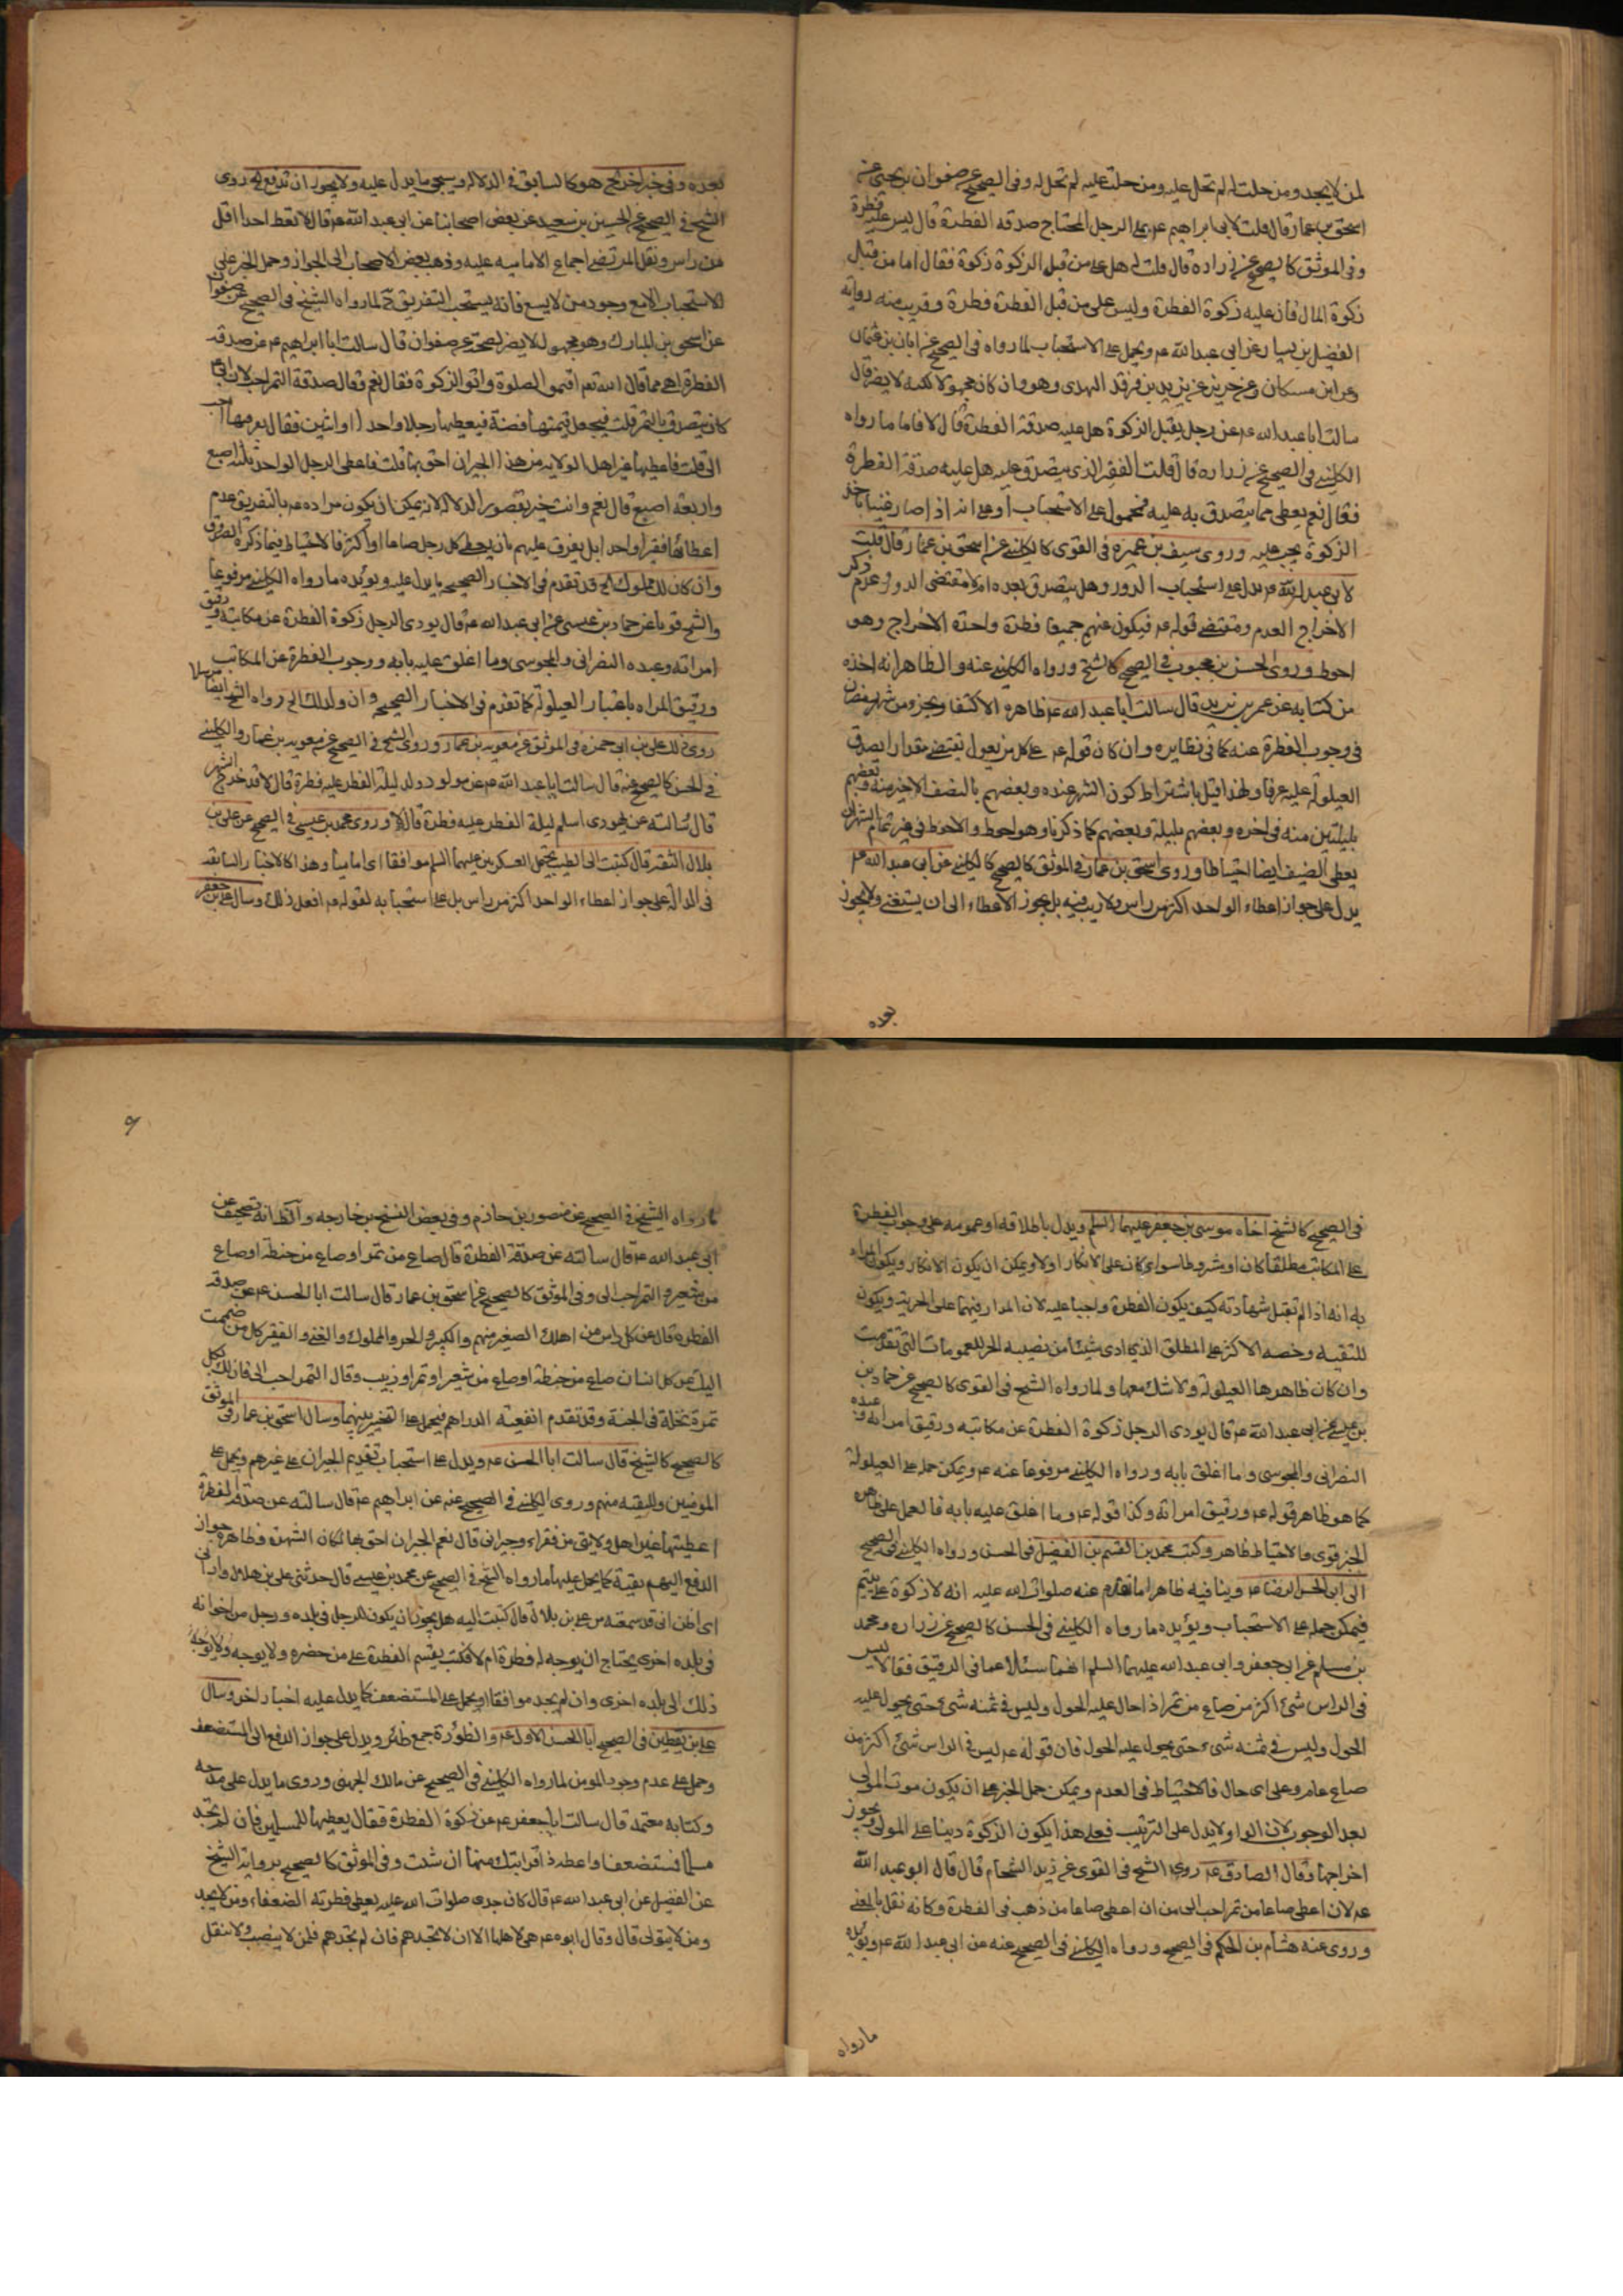 لمن لا يجد ومن حلت له لم تحل عليه ومن حلت عليه لم تحل له وفى الصحيح عن صفوان بن يحيى عن
اسحق بن عمار قال قلت لابى ابراهيم ع م على الرجل المحتاج صدقه الفطرة قال ليس عليه فطرة
وفى الموثق كالصحيح عن زراره قال قلت له هل على من قبل الزكوة زكوة فقال اما من قبل
زكوة المال فان عليه زكوة الفطرة وليس على من قبل الفطرة فطرة وقريب منه رواية
الفضيل بن يسار عن ابى عبد الله ع م ويحمل على الاستحباب لما رواه فى الصحيح عن ابان بن عثمان
وعن ابن مسكان وعن حريز عن يزيد بن فرقد النهدى وهو وان كان مجهولا لكنه لا يضر قال
سالت ابا عبد الله ع م عن رجل يقبل الزكوة هل عليه صدقة الفطرة قال لا فاما ما رواه
الكلينى فى الصحيح عن زراره قال قلت الفقير الذى يتصدق عليه هل عليه صدقة الفطرة
فقال نعم يعطى مما يتصدق به عليه فمحمول على الاستحباب او على انه اذا صار غنيا باخذ
الزكوة يجب عليه وروى سيف بن عميره فى القوى كالكلينى عن اسحق بن عمار قال قلت
لابى عبد الله ع م يدل على استحباب الدور وهل يتصدق بعده ام لا مقتضى الدور وعدم ذكر
الاخراج العدم ومقتضى قوله ع م فيكون عنهم جميعا فطرة واحدة الاخراج وهو
احوط وروى الحسن بن محبوب فى الصحيح كالشيخ ورواه الكلينى عنه والظاهر انه اخذه
من كتابه عن عمر بن يزيد قال سالت ابا عبد الله ع م ظاهره الاكتفا بجزء من شهر رمضان
فى وجوب الفطرة عنه كما فى نظايره وان كان قوله ع م على كل من يعول يقتضى مقدارا يصدق
العيلولة عليه عرفا ولهذا قيل باشتراط كون الشهر عنده وبعضهم بالنصف الاخير منه وبعضهم
بليلتين منه فى اخره وبعضهم بليلة وبعضهم كما ذكرنا وهو احوط والاحوط فى غير تمام الشهر ان
يعطى الضيف ايضا احتياطا وروى اسحق بن عمار فى الموثق كالصحيح كالكلينى عن ابى عبد الله ع م
يدل على جواز اعطاء الواحد اكثر من راس ولا ريب فيه بل يجوز الاعطاء الى ان يستغنى ولا يجوز
بعده
بعده وفى خبر اخر الخ هو كالسابق فى الدلالة وسيجئ ما يدل عليه ولا يجوز ان تدفع الخ روى
الشيخ فى الصحيح عن الحسين بن سعيد عن بعض اصحابنا عن ابى عبد الله ع م قال لا تعط احدا اقل
من راس ونقل المرتضى اجماع الاماميه عليه وذهب بعض الاصحاب الى الجواز وحمل الخبر على
الاستحباب الا مع وجود من لا يسع فانه يستحب التفريق لما رواه الشيخ فى الصحيح عن صفوان
عن اسحق بن المبارك وهو مجهول لا يضر لصحته عن صفوان قال سالت ابا ابراهيم ع م عن صدقة
الفطرة اهى مما قال الله تعم اقيموا الصلوة واتوا الزكوة فقال نعم وقال صدقة التمر احب لان ابى
كان يتصدق بالتمر قلت فيجعل قيمتها فضة فيعطيها رجلا واحدا او اثنين فقال يفرقها احب
الى قلت فاعطيها غير اهل الولاية من هذا الجيران احق بها قلت فاعطى الرجل الواحد ثلثة اصيع
واربعة اصيع قال نعم وانت خبير بقصور الدلالة لانه يمكن ان يكون مراده ع م بالتفريق عدم
اعطائها فقيرا واحدا بل يفرق عليهم بان يعطى كل رجل صاعا او اكثر فالاحتياط فيما ذكره الصدوق
وان كان لك مملوك الخ قد تقدم فى الاخبار الصحيحة ما يدل عليه ويؤيده ما رواه الكلينى مرفوعا
والشيخ قويا عن حماد بن عيسى عن ابى عبد الله ع م قال يودى الرجل زكوة الفطرة عن مكاتبه ورقيق
امراته وعبده النصرانى والمجوسى وما اغلق عليه بابه ووجوب الفطرة عن المكاتب
ورقيق المراه باعتبار العيلولة كما تقدم فى الاخبار الصحيحه وان ولد لك الخ رواه الشيخ ايضا مرسلا
روى ذلك على بن ابى حمزه فى الموثق عن معويه بن عمار وروى الشيخ فى الصحيح عن معويه بن عمار والكلينى
فى الحسن كالصحيح عنه قال سالت ابا عبد الله ع م عن مولود ولد ليلة الفطر عليه فطرة قال لا قد خرج الشهر
قال سالته عن يهودى اسلم ليلة الفطر عليه فطرة قال لا وروى محمد بن عيسى فى الصحيح عن على بن
بلال الثقة قال كتبت الى الطيب يحتمل العسكريين عليهما السلم موافقا اى اماميا وهذا كالاخبار السابقه
فى الدلالة على جواز اعطاء الواحد اكثر من راس بل على استحبابه لقوله ع م افعل ذلك وسال على بن جعفر
فى الصحيح كالشيخ اخاه موسى بن جعفر عليهما السلم ويدل باطلاقه او عمومه على وجوب الفطرة
على المكاتب مطلقا كان او مشروطا سواء كان على الانكار اولا ويمكن ان يكون الانكار ويكون المراد
به انه اذا لم تقبل شهادته كيف يكون الفطرة واجبا عليه لان المدار فيهما على الحرية ويكون
للتقيه وخصه الاكثر على المطلق الذى ادى شيئا من نصيبه الحر للعمومات التى تقدمت
وان كان ظاهرها العيلولة ولا شك معها ولما رواه الشيخ فى القوى كالصحيح عن حماد بن
بن عيسى عن ابى عبد الله ع م قال يودى الرجل زكوة الفطرة عن مكاتبه ورقيق امراته وعبده
النصرانى والمجوسى وما اغلق بابه ورواه الكلينى مرفوعا عنه ع م ويمكن حمله على العيلولة
كما هو ظاهر قوله ع م ورقيق امراته وكذا قوله ع م وما اغلق عليه بابه فالعمل على ظاهره
الخبر قوى والاحتياط ظاهر وكتب محمد بن القسم بن الفضيل فى الحسن ورواه الكلينى فى الصحيح
الى ابى الحسن الرضا ع م وينافيه ظاهرا ما تقدم عنه صلوات الله عليه انه لا زكوة على يتيم
فيمكن حمله على الاستحباب ويؤيده ما رواه الكلينى فى الحسن كالصحيح عن زراره ومحمد
بن مسلم عن ابى جعفر وابى عبد الله عليهما السلم انهما سئلا عما فى الرقيق فقالا ليس
فى الراس شئ اكثر من صاع من تمر اذا حال عليه الحول وليس فى ثمنه شئ حتى يحول عليه
الحول وليس فى ثمنه شئ حتى يحول عليه الحول فان قوله ع م ليس فى الراس شئ اكثر من
صاع عام وعلى اى حال فالاحتياط فى العدم ويمكن حمل الخبر على ان يكون موت المولى
بعد الوجوب لان الواو لا يدل على الترتيب فعلى هذا يكون الزكوة دينا على المولى ويجوز
اخراجها وقال الصادق ع م روى الشيخ فى القوى عن زيد الشحام قال قال ابو عبد الله
ع م لان اعطى صاعا من تمر احب الى من ان اعطى صاعا من ذهب فى الفطرة وكانه نقل بالمعنى
وروى عنه هشام بن الحكم فى الصحيح ورواه الكلينى فى الصحيح عنه عن ابى عبد الله ع م ويؤيده
ما رواه
ما رواه الشيخ فى الصحيح عن منصور بن حازم وفى بعض النسخ بن خارجه والظ انه تصحيف عن
ابى عبد الله ع م قال سالته عن صدقة الفطرة قال صاع من تمر او صاع من حنطه او صاع
من شعير والتمر احب الى وفى الموثق كالصحيح عن اسحق بن عمار قال سالت ابا الحسن ع م عن صدقه
الفطرة قال عن كل راس من اهلك الصغير منهم والكبير والحر والمملوك والغنى والفقير كل من ضممت
اليك عن كل انسان صاع من حنطه او صاع من شعير او تمر او زبيب وقال التمر احب الى فان لك بكل
تمرة نخلة فى الجنة وقد تقدم انفعية الدراهم فيحمل على التخيير بينهما وسال اسحق بن عمار فى الموثق
كالصحيح كالشيخ قال سالت ابا الحسن ع م ويدل على استحباب تقديم الجيران على غيرهم ويحمل على
المومنين وللتقيه منهم وروى الكلينى فى الصحيح عنه عن ابراهيم ع م قال سالته عن صدقه الفطرة
اعطيتها غير اهل ولايتى من فقراء وجيرانى قال نعم الجيران احق بها لمكان الشهرة وظاهره جواز
الدفع اليهم تقية كما يحمل عليها ما رواه الشيخ فى الصحيح عن محمد بن عيسى قال حدثنى على بن بلال وارانى
اى اظن انى قد سمعته من على بن بلال قال كتبت اليه هل يجوز ان يكون الرجل فى بلده ورجل من اخوانه
فى بلده اخرى يحتاج ان يوجه له فطرة ام لا فكتب يقسم الفطرة على من حضره ولا يوجه
ذلك الى بلده اخرى وان لم يجد موافقا او يحمل على المستضعف كما يدل عليه اخبار اخر وسال
على بن يقطين فى الصحيح ابا الحسن الاول ع م والظؤرة جمع ظئر ويدل على جواز الدفع الى المستضعف
وحمل على عدم وجود المومن لما رواه الكلينى فى الصحيح عن مالك الجهنى وروى ما يدل على مدحه
وكتابه معتمد قال سالت ابا جعفر ع م عن زكوة الفطرة فقال يعطيها المسلمين فان لم تجد
مسلما فمستضعفا واعط ذا قرابتك منها ان شئت وفى الموثق كالصحيح برواية الشيخ
عن الفضيل عن ابى عبد الله ع م قال كان جدى صلوات الله عليه يعطى فطرته الضعفاء ومن لا يجد
ومن لا يتولى قال وقال ابوه ع م هى لاهلها الا ان لا تجدهم فان لم تجدهم فلمن لا ينصب ولا تنقل